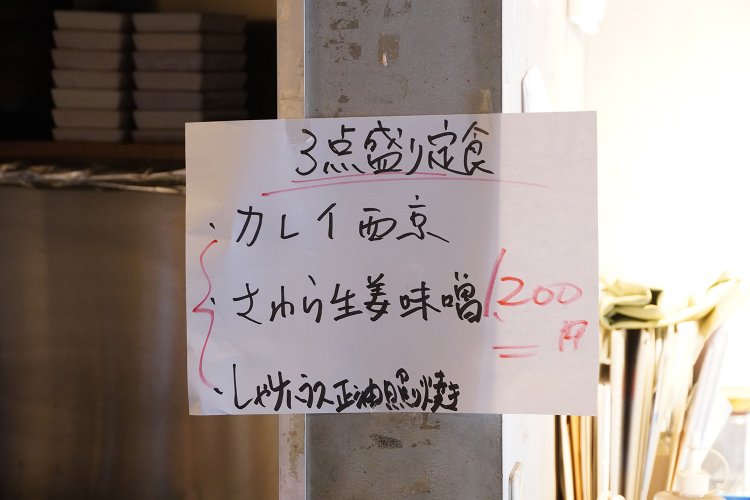 3点盛り定食
・カレイ西京
・さわら生姜味噌
1,200円
・しゃけハラス正油照り焼き